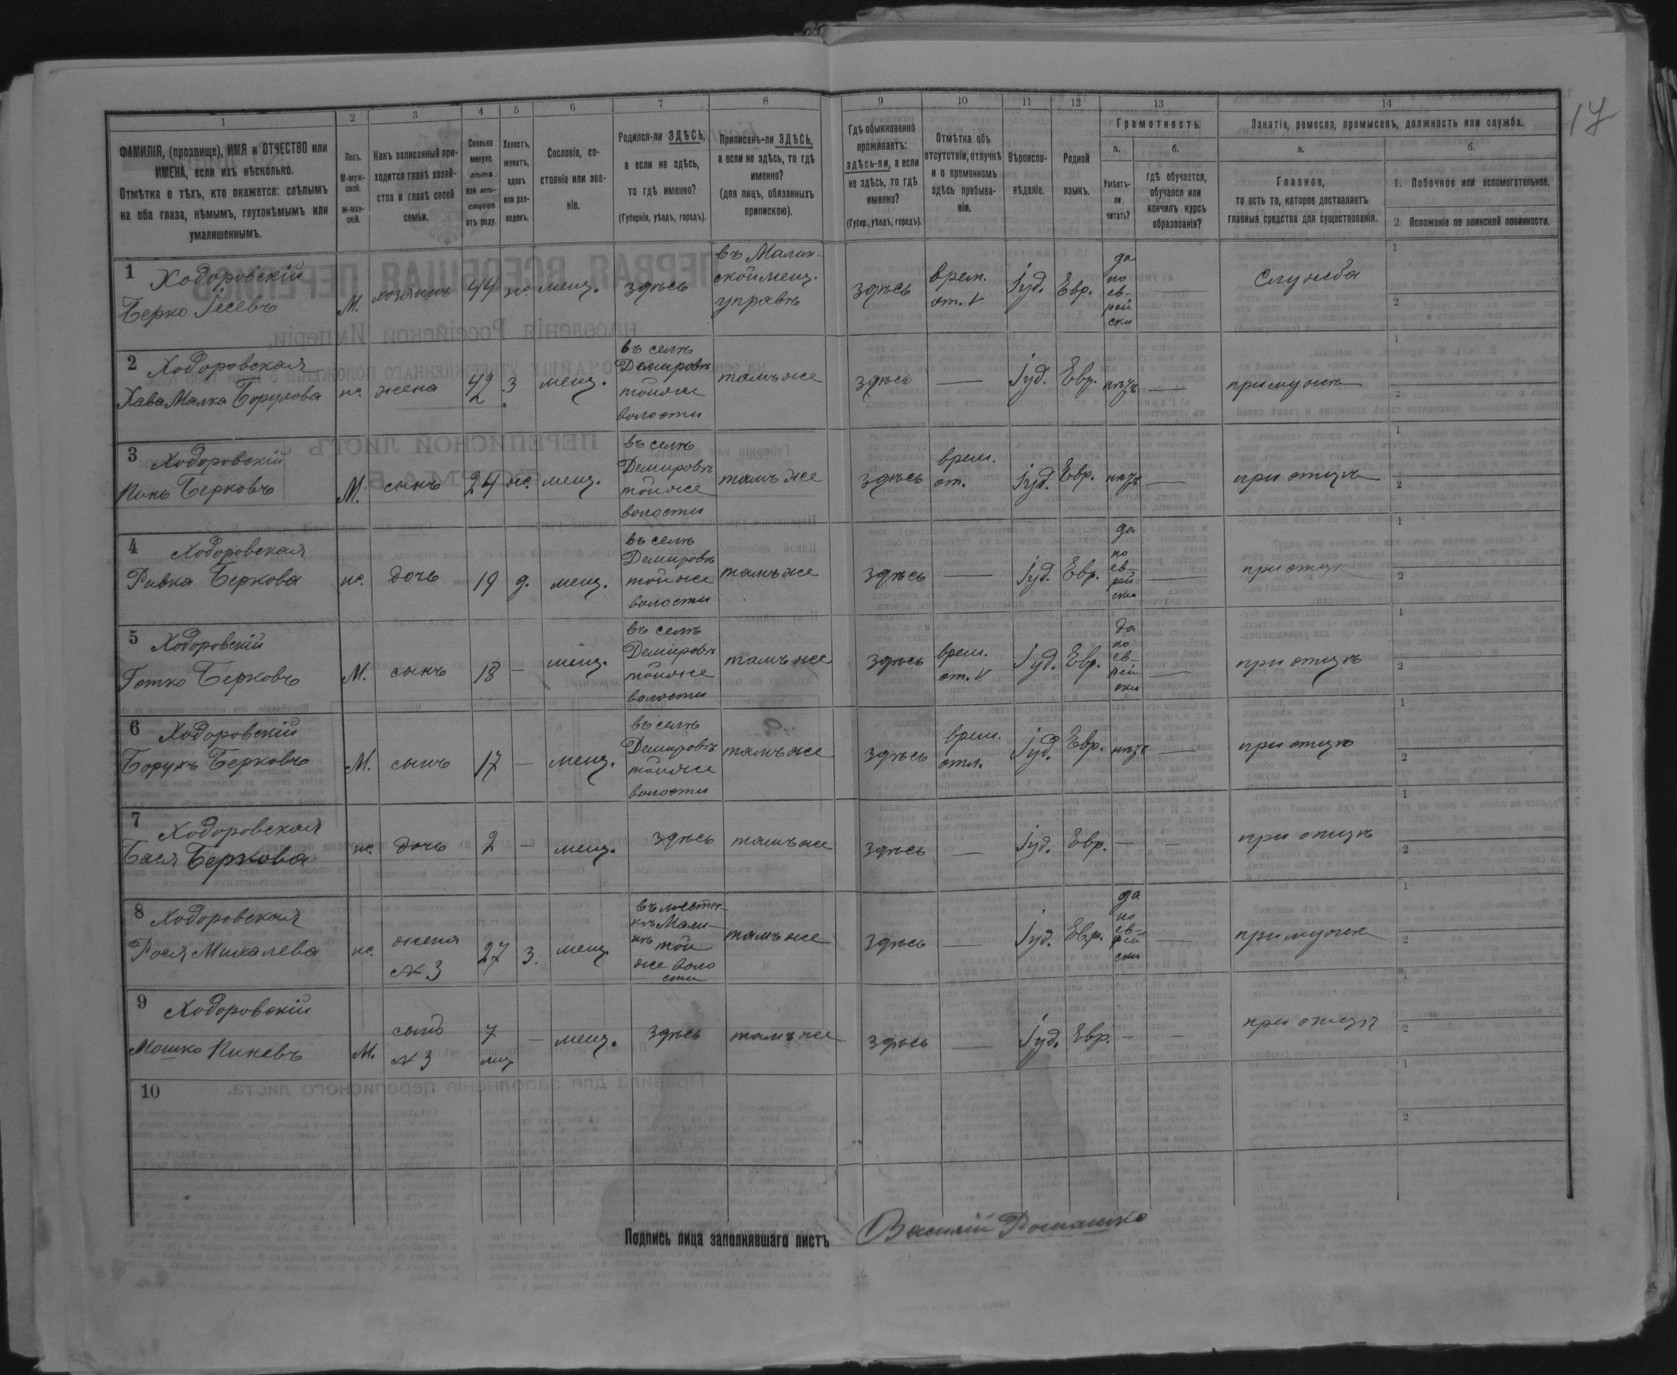 17
1 2 3 4 5 6 7 8 9 10 11 12 13 14
ФАМИЛІЯ, (прозвище), ИМЯ и ОТЧЕСТВО или
ИМЕНА, если ихъ нѣсколько.
Отмѣтка о тѣхъ, кто окажется: слѣпымъ
на оба глаза, нѣмымъ, глухонѣмымъ или
умалишеннымъ.
Полъ.
М-муж-
ской.
Ж-жен-
скій.
Какъ записанный при-
ходится главѣ хозяй-
ства и главѣ своей
семьи.
Сколько
минуло
лѣтъ
или мѣ-
сяцевъ
отъ роду.
Холостъ,
женатъ,
вдовъ
или раз-
веденъ.
Сословіе, со-
стояніе или зва-
ніе.
Родился-ли ЗДѢСЬ,
а если не здѣсь,
то гдѣ именно?
(Губернія, уѣздъ, городъ).
Приписанъ-ли ЗДѢСЬ,
а если не здѣсь, то гдѣ
именно?
(для лицъ, обязанныхъ
припискою).
Гдѣ обыкновенно
проживаетъ:
здѣсь-ли, а если
не здѣсь, то гдѣ
именно?
(Губер., уѣздъ, городъ).
Отмѣтка объ
отсутствіи, отлучкѣ
и о временномъ
здѣсь пребыва-
ніи.
Вѣроиспо-
вѣданіе.
Родной
языкъ.
Грамотность.
а.
Умѣетъ-
ли
читать?
б.
гдѣ обучается,
обучался или
кончилъ курсъ
образованія?
Занятіе, ремесло, промыселъ, должность или служба.
а.
Главное,
то есть то, которое доставляетъ
главныя средства для существованія.
б.
1. Побочное или вспомогательное.
2 Положеніе по воинской повинности.
1 Ходоровскій
Берко Іосевъ
М. хозяинъ 44 ж. мещ. здѣсь
въ Малин-
ской мещ.
управѣ
здѣсь
врем.
от. V
Іуд. Евр.
да
по
ев-
рей
ски
—
служба
1
2
2 Ходоровская
Хава Малка Борухова
ж. жена 42 з. мещ.
въ селѣ
Демировкѣ
той же
волости
тамъ же здѣсь — Іуд. Евр. нѣтъ — при мужѣ
1
2
3 Ходоровскій
Пинь Берковъ
М. сынъ 24 ж. мещ.
въ селѣ
Демировкѣ
той же
волости
тамъ же здѣсь
врем.
от.
Іуд. Евр. нѣтъ — при отцѣ
1
2
4 Ходоровская
Ривка Беркова
ж. дочь 19 д. мещ.
въ селѣ
Демировкѣ
той же
волости
тамъ же здѣсь — Іуд. Евр.
да
по
ев-
рей
ски
— при отцѣ
1
2
5 Ходоровскій
Готко Берковъ
М. сынъ 18 — мещ.
въ селѣ
Демировкѣ
той же
волости
тамъ же здѣсь
врем.
от. V
Іуд. Евр.
да
по
ев-
рей
ски
— при отцѣ
1
2
6 Ходоровскій
Борухъ Берковъ
М. сынъ 17 — мещ.
въ селѣ
Демировкѣ
той же
волости
тамъ же здѣсь
врем.
отл.
Іуд. Евр. нѣтъ — при отцѣ
1
2
7 Ходоровская
Бася Беркова
ж. дочь 2 — мещ. здѣсь тамъ же здѣсь — Іуд. Евр. — — при отцѣ
1
2
8 Ходоровская
Рося Михалева
ж.
жена
№ 3
27 з. мещ.
въ местеч-
кѣ Мали-
нѣ той
же воло
сти
тамъ же здѣсь — Іуд. Евр.
да
по
ев-
рей
ски
— при мужѣ
1
2
9 Ходоровскій
Мошко Пиневъ
М.
сынъ
№ 3
7
мѣц
— мещ. здѣсь тамъ же здѣсь — Іуд. Евр. — — при отцѣ
1
2
10
1
2
Подпись лица заполнявшаго листъ Василій Ромашко